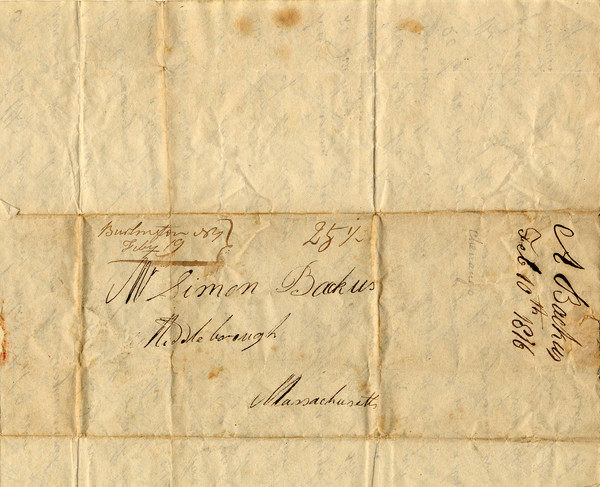 Burlington NY
Feby 19
25½
Mr Simon Backus
Middleborough
Massachusetts
A Backus
Feb 10th 1816